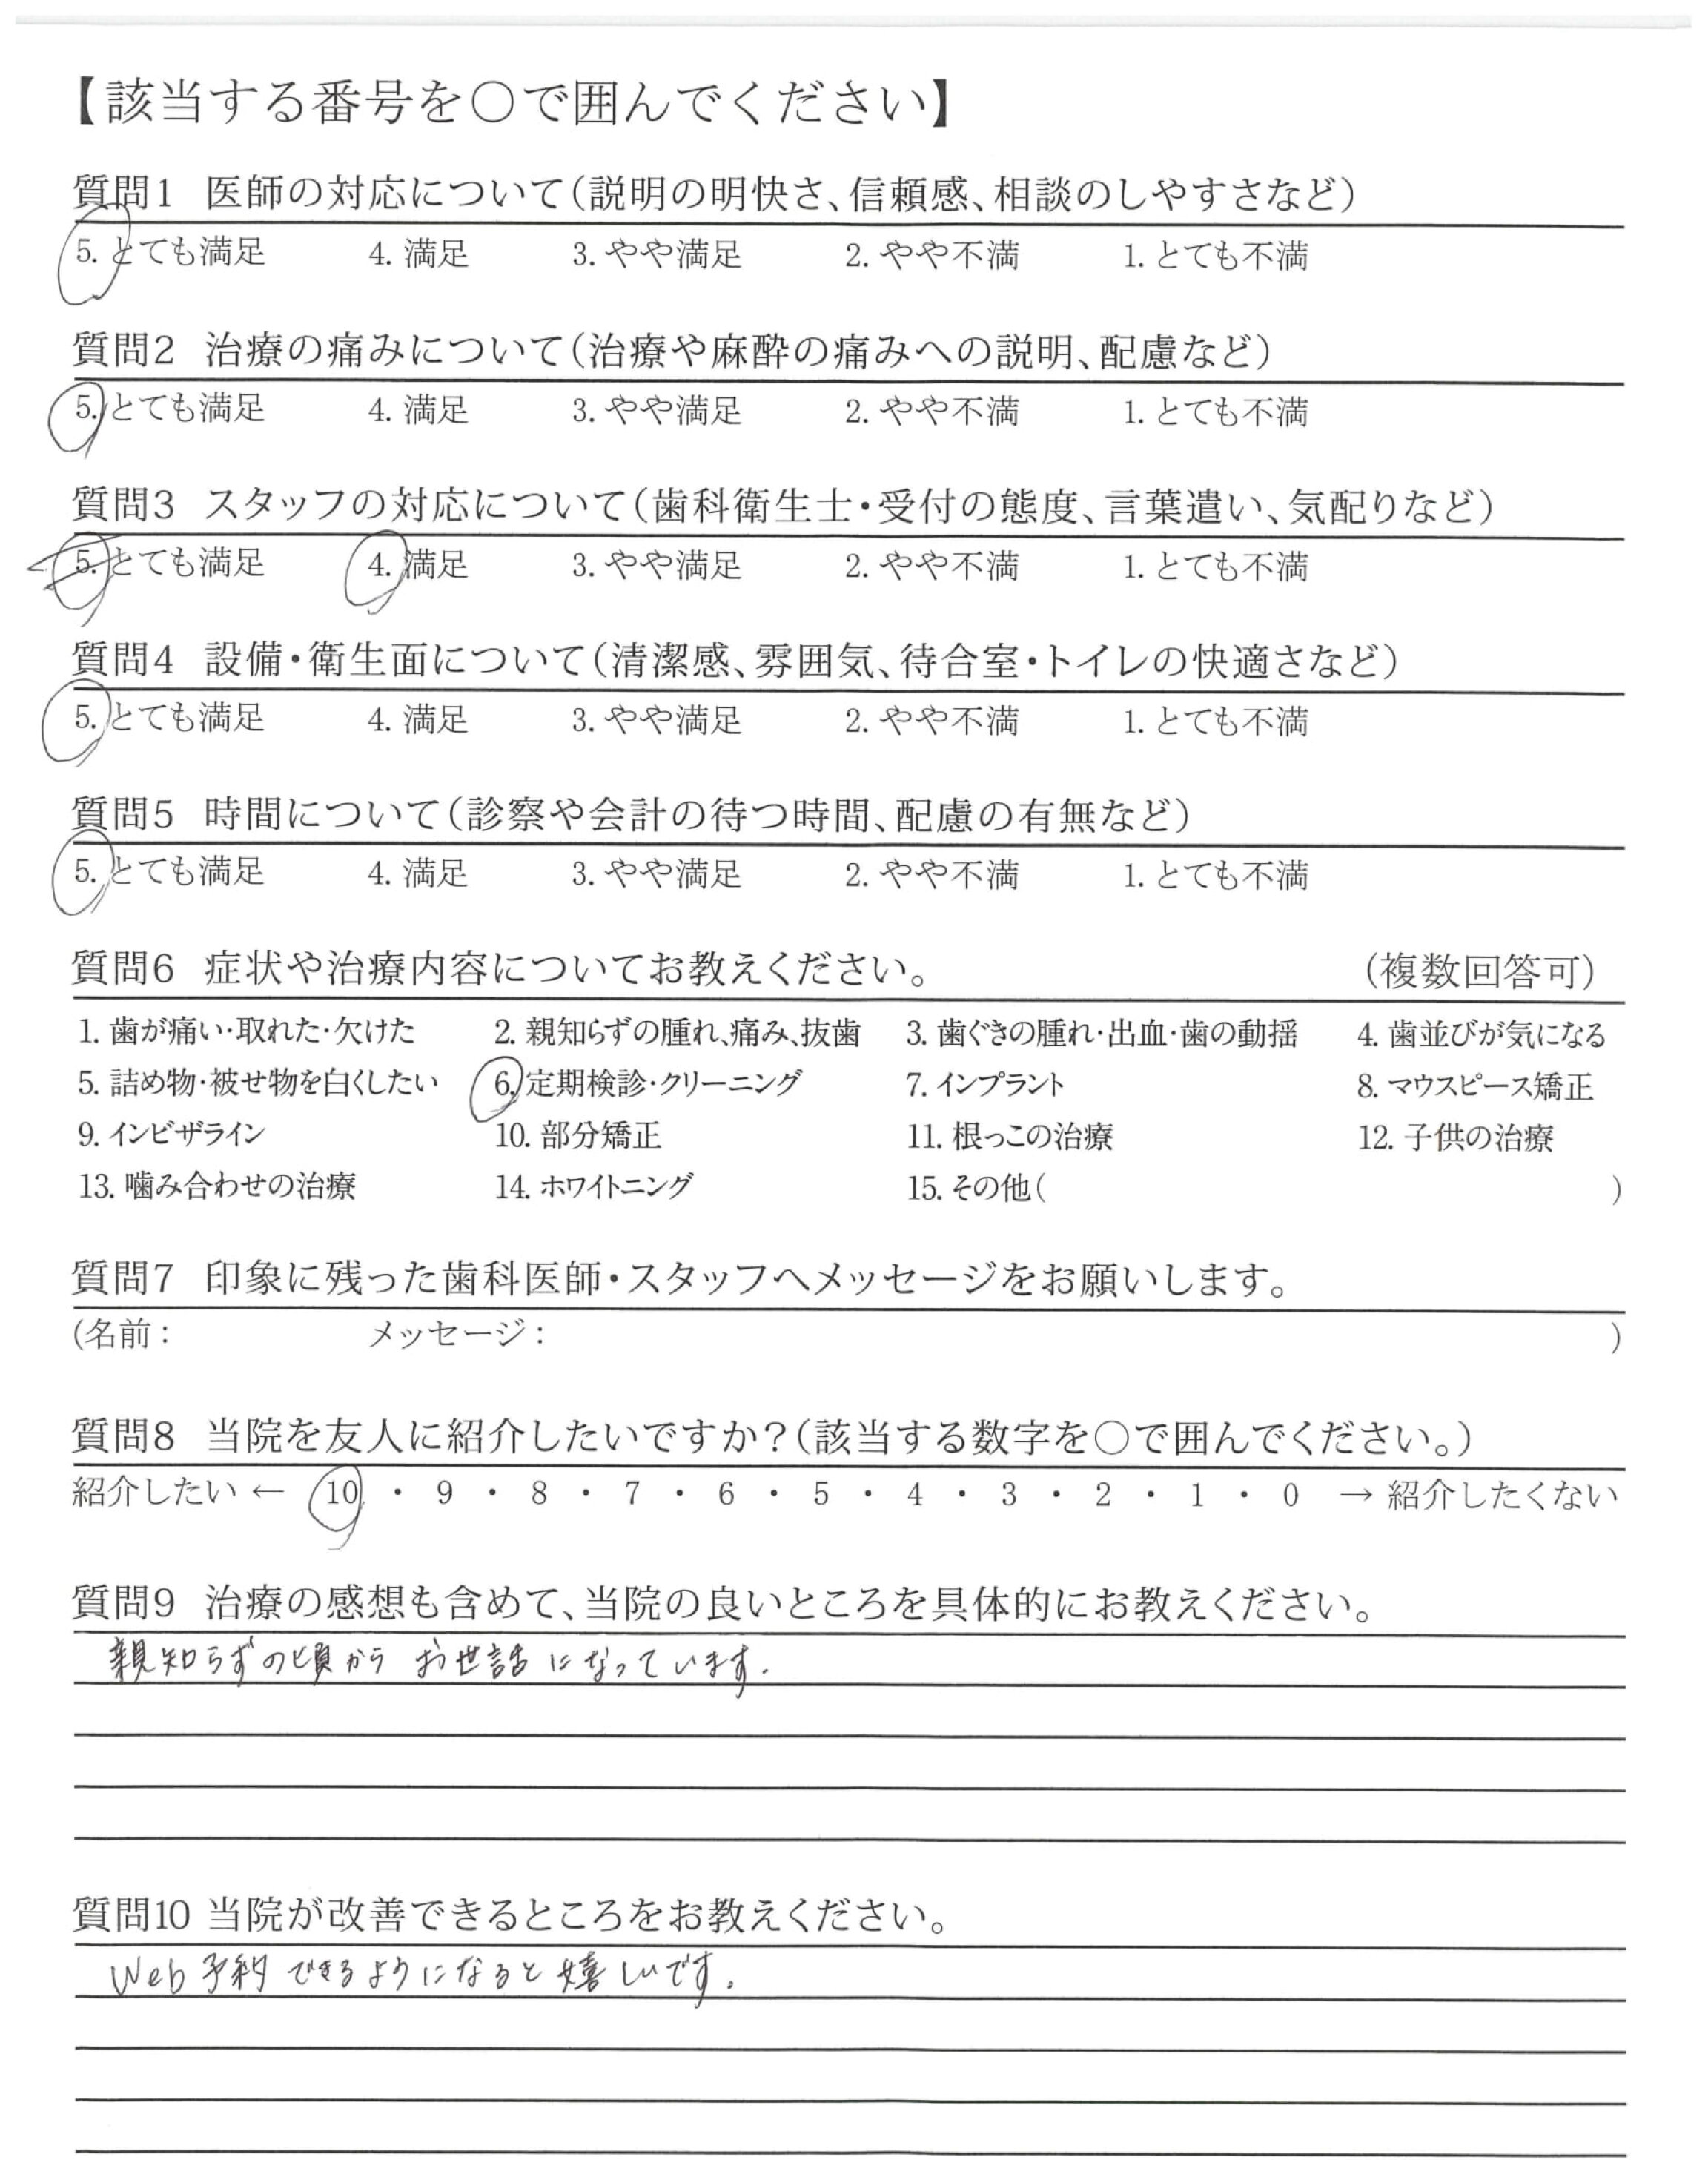 【該当する番号を○で囲んでください】
質問1 医師の対応について(説明の明快さ、信頼感、相談のしやすさなど)
5. とても満足 4. 満足 3. やや満足 2. やや不満 1. とても不満
質問2 治療の痛みについて(治療や麻酔の痛みへの説明、配慮など)
5. とても満足 4. 満足 3. やや満足 2. やや不満 1. とても不満
質問3 スタッフの対応について(歯科衛生士・受付の態度、言葉遣い、気配りなど)
5. とても満足 4. 満足 3. やや満足 2. やや不満 1. とても不満
質問4 設備・衛生面について(清潔感、雰囲気、待合室・トイレの快適さなど)
5. とても満足 4. 満足 3. やや満足 2. やや不満 1. とても不満
質問5 時間について(診察や会計の待つ時間、配慮の有無など)
5. とても満足 4. 満足 3. やや満足 2. やや不満 1. とても不満
質問6 症状や治療内容についてお教えください。 (複数回答可)
1. 歯が痛い・取れた・欠けた 2. 親知らずの腫れ、痛み、抜歯 3. 歯ぐきの腫れ・出血・歯の動揺 4. 歯並びが気になる
5. 詰め物・被せ物を白くしたい 6. 定期検診・クリーニング 7. インプラント 8. マウスピース矯正
9. インビザライン 10. 部分矯正 11. 根っこの治療 12. 子供の治療
13. 噛み合わせの治療 14. ホワイトニング 15. その他( )
質問7 印象に残った歯科医師・スタッフへメッセージをお願いします。
(名前: メッセージ: )
質問8 当院を友人に紹介したいですか?(該当する数字を○で囲んでください。)
紹介したい ← 10 ・ 9 ・ 8 ・ 7 ・ 6 ・ 5 ・ 4 ・ 3 ・ 2 ・ 1 ・ 0 → 紹介したくない
質問9 治療の感想も含めて、当院の良いところを具体的にお教えください。
親知らずの頃から お世話になっています.
質問10 当院が改善できるところをお教えください。
Web予約できるようになると嬉しいです。